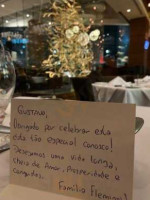 Gustavo,
Obrigado por celebrar esta
data tão especial conosco!
Desejamos uma vida longa,
cheia de Amor, Prosperidade e
conquistas.
Família Fleming!